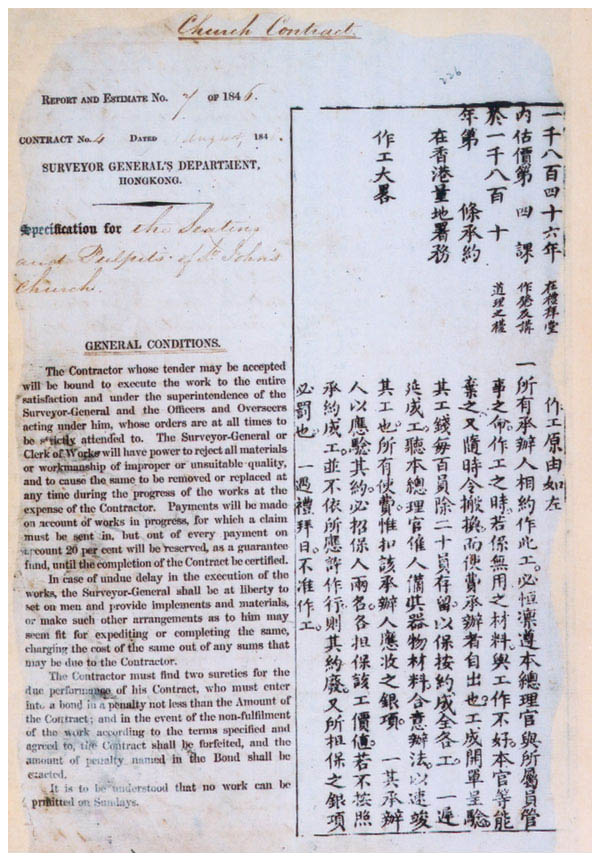 Church Contract.
226
REPORT AND ESTIMATE No. 7 OF 1846.
CONTRACT No. 4 DATED August, 184
SURVEYOR GENERAL'S DEPARTMENT,
HONGKONG.
Specification for the Seating
and Pulpits of St. John's
Church.
GENERAL CONDITIONS.
The Contractor whose tender may be accepted
will be bound to execute the work to the entire
satisfaction and under the superintendence of the
Surveyor-General and the Officers and Overseers
acting under him, whose orders are at all times to
be strictly attended to. The Surveyor-General or
Clerk of Works will have power to reject all materials
or workmanship of improper or unsuitable quality,
and to cause the same to be removed or replaced at
any time during the progress of the works at the
expense of the Contractor. Payments will be made
on account of works in progress, for which a claim
must be sent in, but out of every payment on
account 20 per cent will be reserved, as a guarantee
fund, until the completion of the Contract be certified.
In case of undue delay in the execution of the
works, the Surveyor-General shall be at liberty to
set on men and provide implements and materials,
or make such other arrangements as to him may
seem fit for expediting or completing the same,
charging the cost of the same out of any sums that
may be due to the Contractor.
The Contractor must find two sureties for the
due performance of his Contract, who must enter
into a bond in a penalty not less than the Amount of
the Contract; and in the event of the non-fulfilment
of the work according to the terms specified and
agreed to, the Contract shall be forfeited, and the
amount of penalty named in the Bond shall be
exacted.
It is to be understood that no work can be
prmitted on Sundays.
一千八百四十六年
內估價第四課
於一千八百十
年第 條承約
在香港量地署務
作工大畧
在禮拜堂
作櫈及講
道理之檯
作工原由如左
一所有承辦人相約作此工。必恒凛遵本總理官與所屬員管
事之命。作工之時。若係無用之材料。與工作不好。本官等能
棄之。又隨時令搬換。而使費承辦者自出也。工成開單呈驗。
其工錢每百員除二十員存留。以保按約成全各工。一遲
延成工。聽本總理官僱人備具器物材料。合意辦法。以速竣
其工也。所有使費。惟扣該承辦人應收之銀項。一其承辦
人以應驗其約。必招保人兩名。各担保該工價值。若不按照
承約成工。並不依所應許作行。則其約廢。又所担保之銀項
必罰也。一遇禮拜日。不准作工。